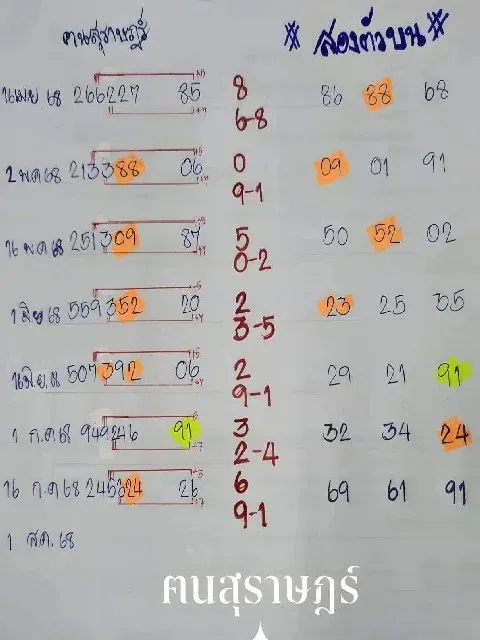 ฅนสุราษฎร์ ※ สองตัวบน ※
16 เมย 68 266227 85 +5 8 86 88 68
+7 6-8
2 พ.ค 68 213388 06 +5 0 09 01 91
9-1
16 พ.ค 68 251309 87 5 50 52 02
+7 0-2
1 มิย 68 559352 20 2 23 25 35
+7 3-5
507392 06 +5 2 29 21 91
+7 9-1
1 ก.ค 68 949246 91 3 32 34 24
2-4
16 ก.ค 68 245324 26 6 69 61 91
9-1
1 ส.ค. 68
ฅนสุราษฎร์